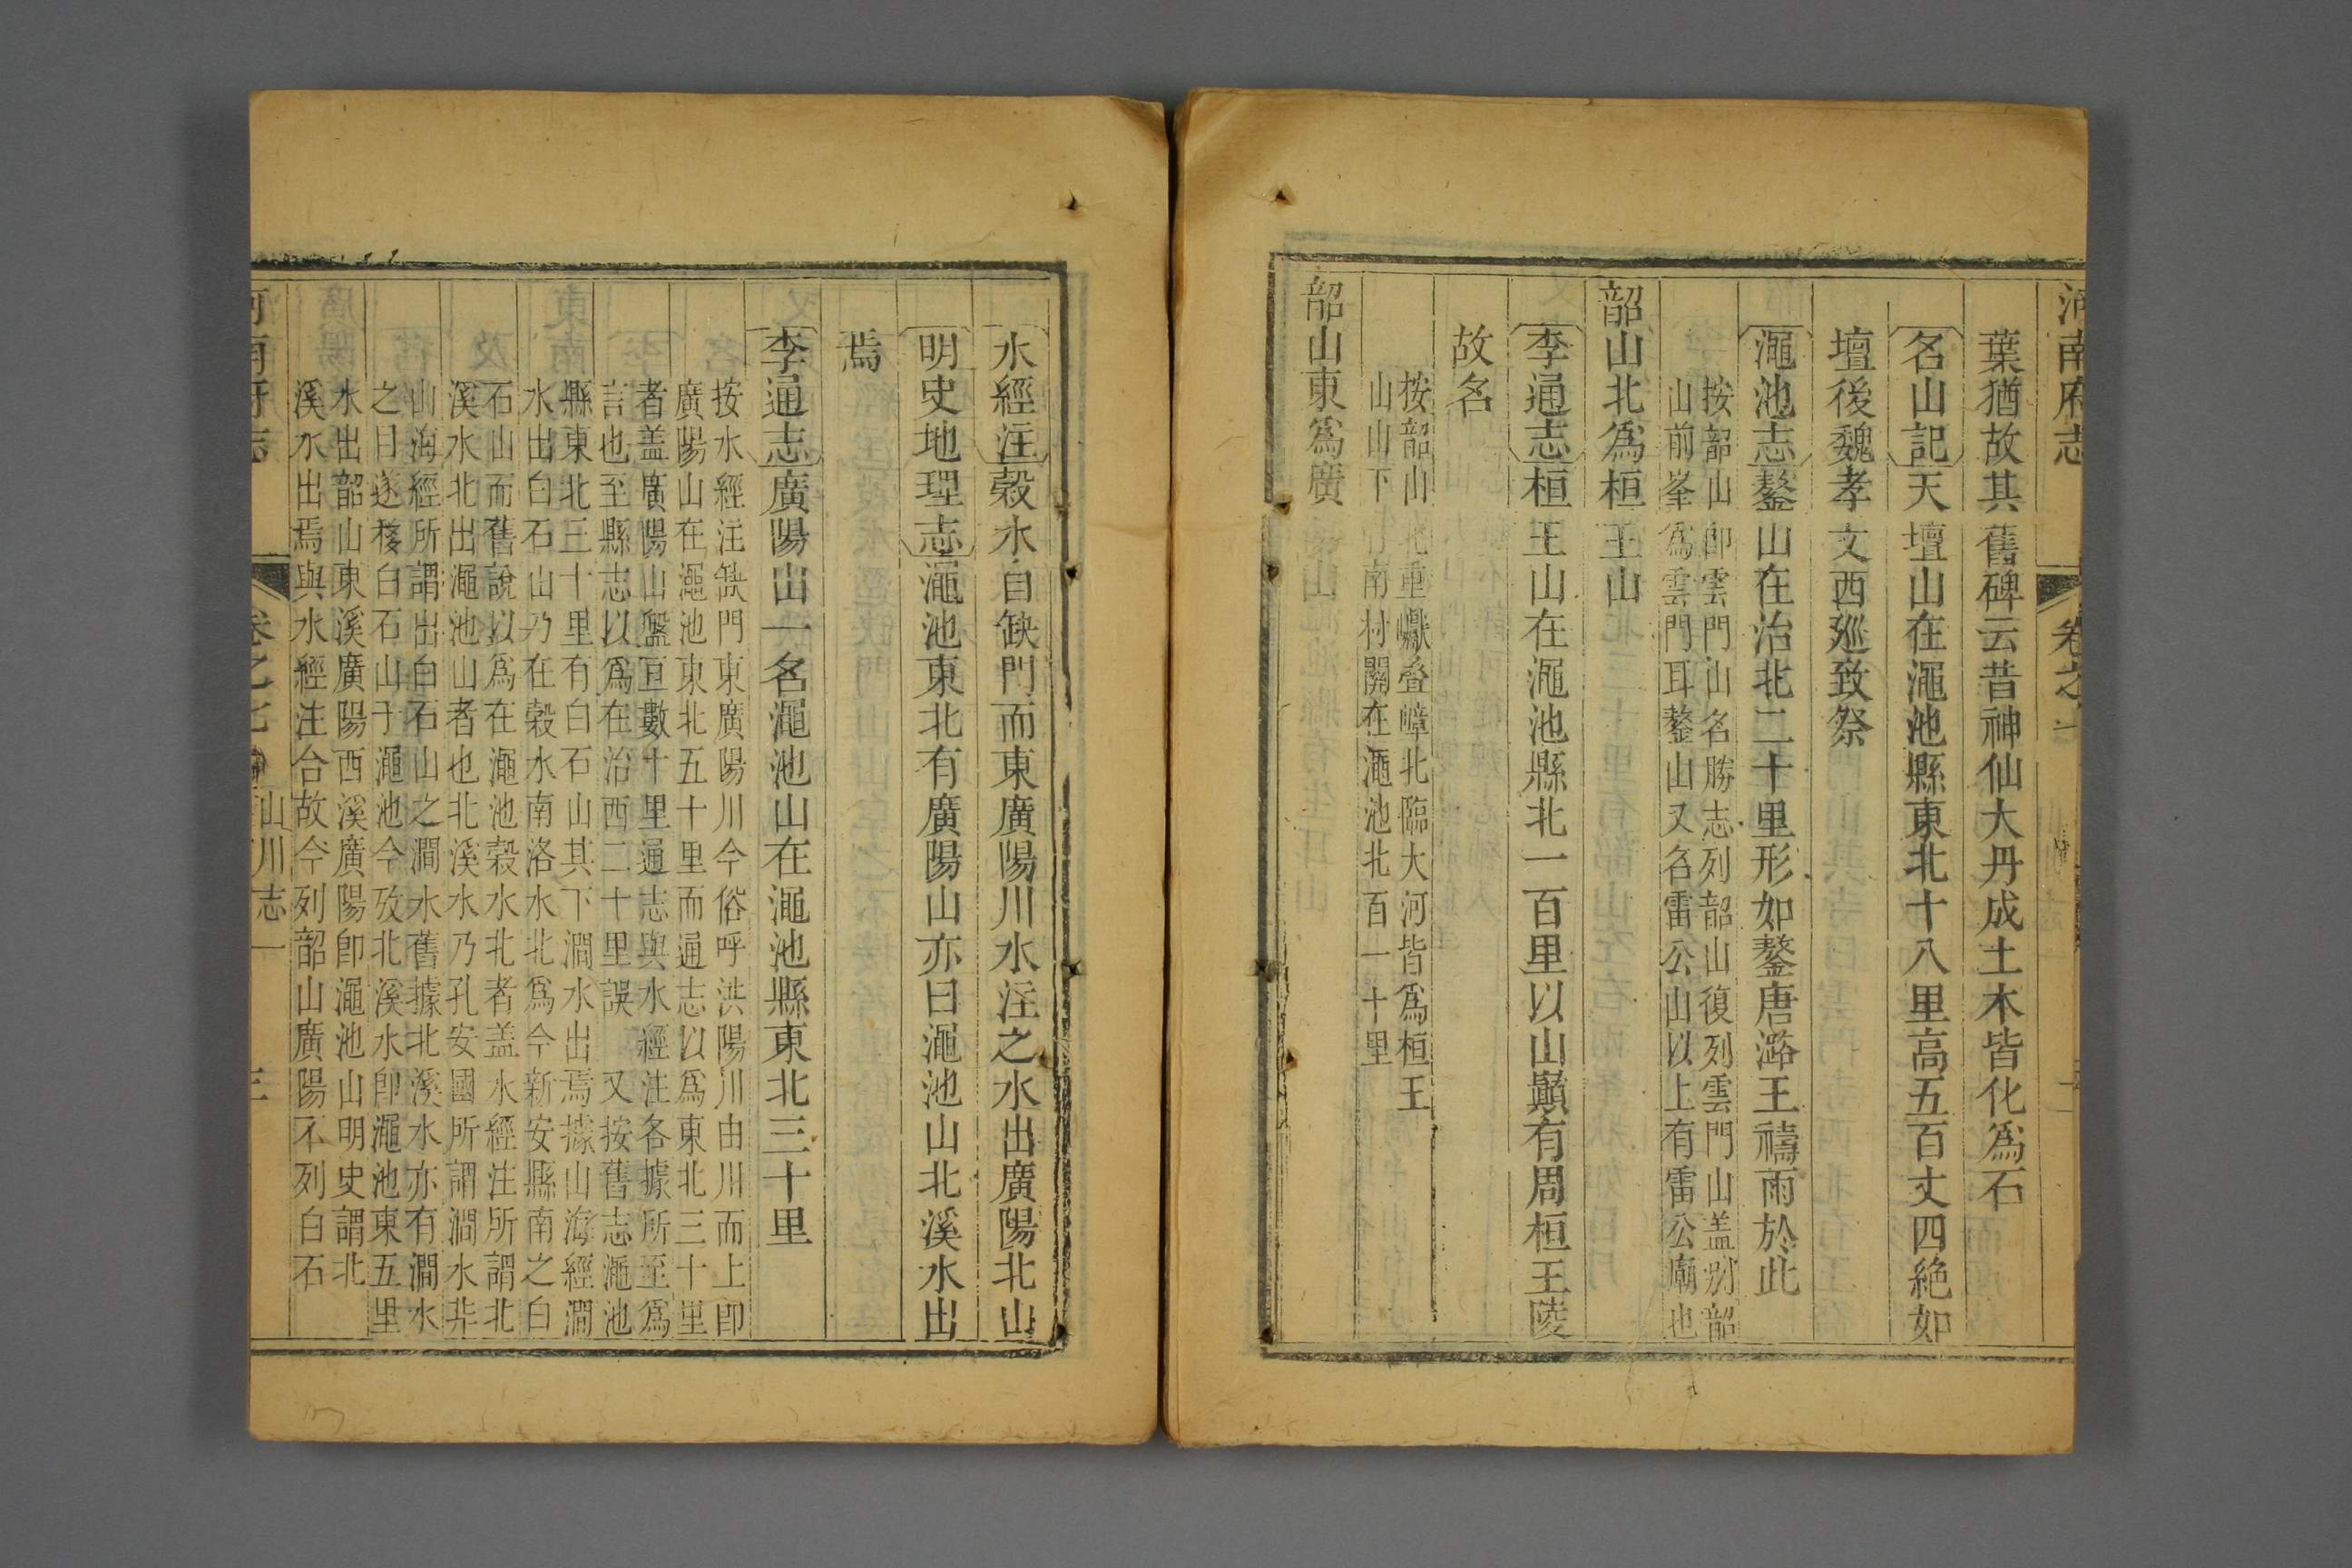 河南府志 卷之
葉猶故其舊碑云昔神仙大丹成土木皆化為石
名山記天壇山在澠池縣東北十八里高五百丈四絶如
壇後魏孝文西廵致祭
澠池志鏊山在治北二十里形如鏊唐潞王禱雨於此
按韶山卽雲門山名勝志列韶山復列雲門山盖別韶
山前峯爲雲門耳鏊山又名雷公山以上有雷公廟也
韶山北爲桓王山
李通志桓王山在澠池縣北一百里以山巓有周桓王陵
故名
按韶山北重巘叠嶂北臨大河皆爲桓王
山山下 南村關在澠池北百一十里
韶山東爲廣
水經注榖水自缺門而東廣陽川水注之水出廣陽北山
明史地理志澠池東北有廣陽山亦曰澠池山北溪水出
焉
李通志廣陽山一名澠池山在澠池縣東北三十里
按水經注缺門東廣陽川今俗呼洪陽川由川而上卽
廣陽山在澠池東北五十里而通志以爲東北三十里
者盖廣陽山盤亘數十里通志與水經注各據所至爲
言也至縣志以爲在治西二十里誤 又按舊志澠池
縣東北三十里有白石山其下澗水出焉據山海經澗
水出白石山乃在榖水南洛水北爲今新安縣南之白
石山而舊說以爲在澠池榖水北者盖水經注所謂北
溪水北出澠池山者也北溪水乃孔安國所謂澗水非
山海經所謂出白石山之澗水舊據北溪水亦有澗水
之目遂移白石山于澠池今攷北溪水卽澠池東五里
水出韶山東溪廣陽西溪廣陽卽澠池山明史謂北
溪水出焉與水經注合故今列韶山廣陽不列白石
河南府志 卷之七 山川志一 三